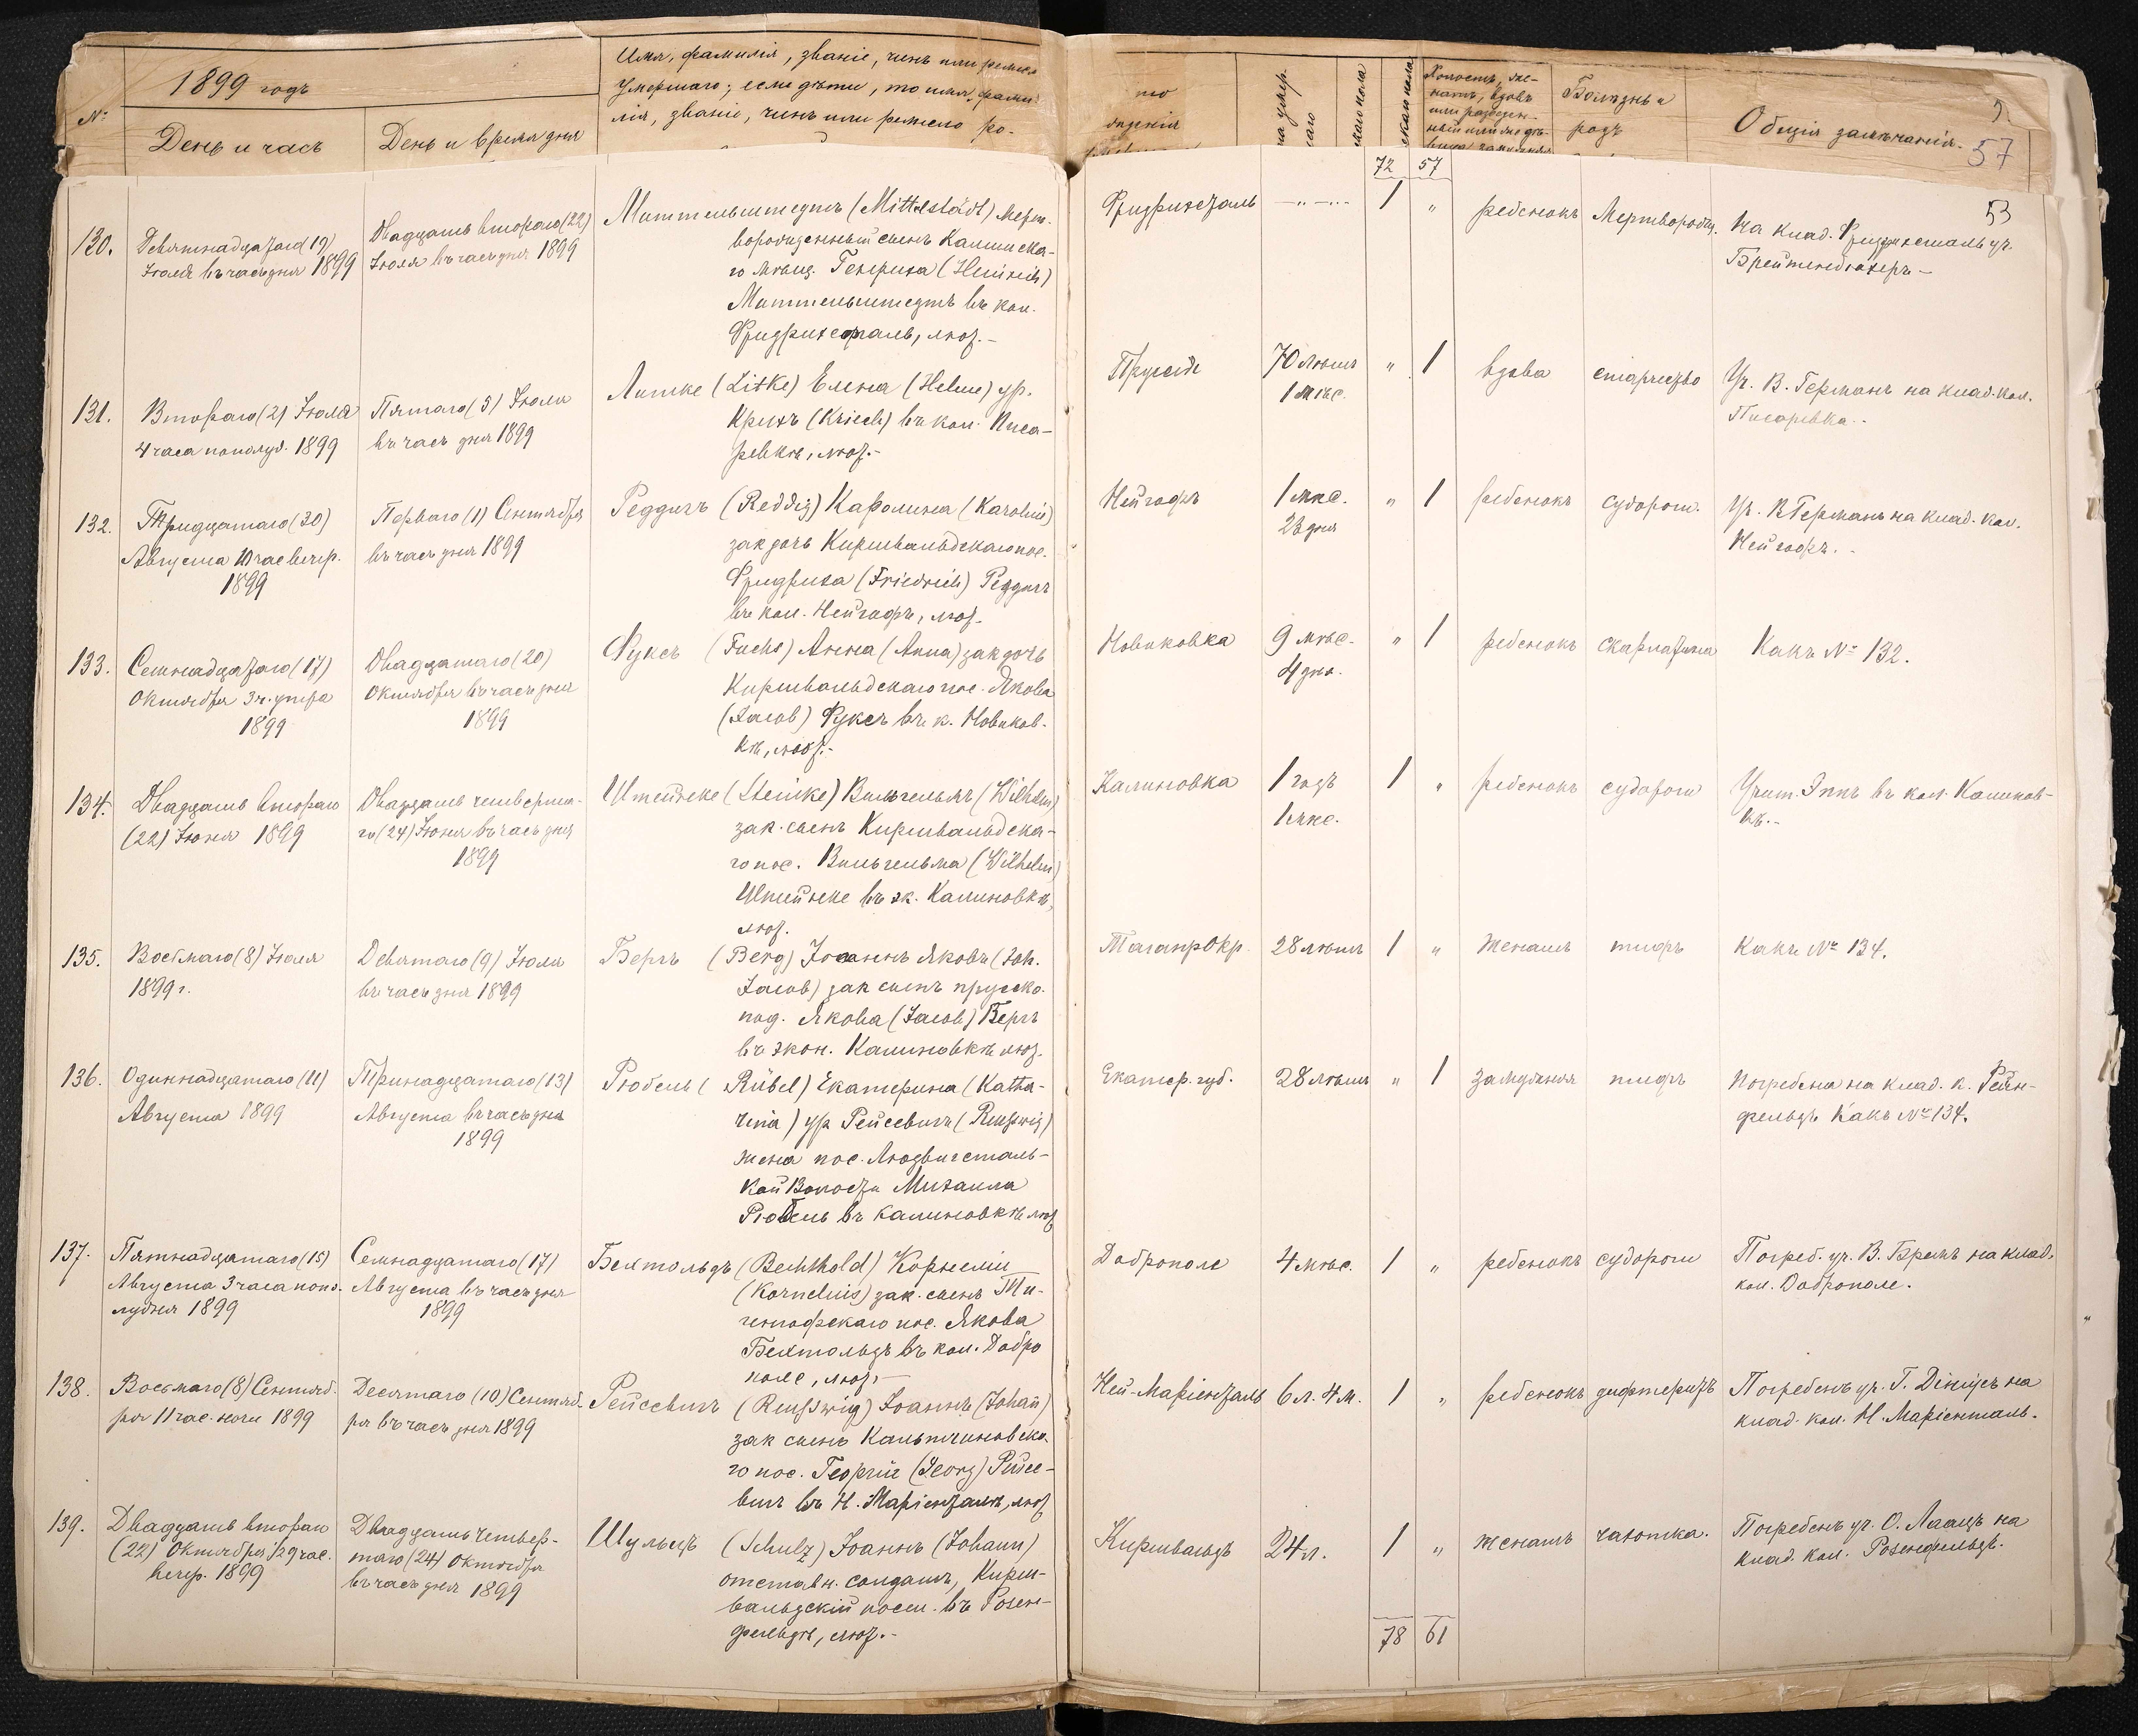 1899 годъ
№
День и часъ
День и время дня
Имя, фамилія, званіе, чинъ или ремесло
умершаго; если дѣти, то имя, фами-
лія, званіе, чинъ или ремесло ро-
Холостъ, же-
натъ, вдовъ
или разведен-
Болѣзнь и
родъ
Общія замѣчанія.
57
53
72 57
130.
Девятнадцатаго (19)
Іюля въ часъ дня 1899
Двадцать второго (22)
Іюля въ часъ дня 1899
Миттельштедтъ (Mittelstädt) мерт-
ворожденный сынъ
Генриха (Heinrich)
Миттельштедтъ въ кол.
Фридрихсталь, люѳ.-
Фридрихсталь
1 "
ребенокъ
Мерворожд.
На клад. Фридрихсталь уч.
131.
Второго (2) Іюля
4 часа пополуд. 1899
Пятаго (5) Іюля
въ часъ дня 1899
Литке (Litke) Елена (Helene) ур.
Крихъ (Kriech) въ кол. Писа-
ревкѣ, люѳ.-
Пруссія
70 лѣтъ
1 мѣс.
" 1
вдова
старчество
Уч. В. Германъ на клад. кол.
Писаревка.
132.
Тридцатаго (30)
Августа 10 час вечер.
1899
Перваго (1) Сентября
въ часъ дня 1899
Реддигъ (Reddig) Каролина (Karolina)
зак дочь Киршвальдскаго пос.
Фридриха (Friedrich) Реддигъ
въ кол. Нейгофъ, люѳ.
Нейгофъ
1 мѣс.
" 1
ребенокъ
судороги.
Уч. В. Германъ на клад. кол.
Нейгофъ.
133.
Семнадцатаго (17)
Октября 3 ч. утра
1899
Двадцатаго (20)
Октября въ часъ дня
1899
Фуксъ (Fuchs) Анна (Anna) зак дочь
Киршвальдскаго пос. Якова
(Jacob) Фуксъ въ к. Новиков-
кѣ, люѳ.-
Новиковка
9 мѣс.
4 дня.
" 1
ребенокъ
скарлатина
Какъ № 132.
134.
Двадцать второго
(22) Іюня 1899
Двадцать четверта-
го (24) Іюня въ часъ дня
1899
Штейнке (Steinke) Вильгельмъ (Wilhelm)
зак. сынъ Киршвальдска-
го пос. Вильгельма (Wilhelm)
Штейнке въ эк. Калиновкѣ,
люѳ.
Калиновка
1 годъ
1 мѣс.
1 "
ребенокъ
судороги
Учит. Эппъ въ кол. Калинов-
кѣ.-
135.
Восьмаго (8) Іюля
1899 г.
Девятаго (9) Іюля
въ часъ дня 1899
Бергъ (Berg) Іоаннъ Яковъ (Joh.
Jacob) зак сынъ прусско-
под. Якова (Jacob) Бергъ
въ экон. Калиновкѣ люѳ.
Таганр окр.
28 лѣтъ
1 "
женатъ
тифъ
Какъ № 134.
136.
Одиннадцатаго (11)
Августа 1899
Тринадцатаго (13)
Августа въ часъ дня
1899
Рюбель (Rübel) Екатерина (Katha-
rina) ур Рейсевигъ (Reußwig)
жена пос. Людвигсталь-
кой Волости Михаила
Рюбель въ Калиновкѣ люѳ
Екатер. губ.
28 лѣтъ
" 1
замужняя
тифъ
Погребена на клад. к. Рейн-
фельдъ Какъ № 134.
137.
Пятнадцатаго (15)
Августа 3 часа попо-
лудня 1899
Семнадцатаго (17)
Августа въ часъ дня
1899
Бехтольдъ (Bechthold) Корнелій
(Kornelius) зак. сынъ Ти-
генгофскаго пос. Якова
Бехтольдъ въ кол. Добро
поле, люѳ.-
Доброполе
4 мѣс.
1 "
ребенокъ
судороги
Погреб. уч. В. Бремъ на клад.
кол. Доброполе.
138.
Восьмаго (8) Сентяб-
ря 11 час. ночи 1899
Десятаго (10) Сентяб-
ря въ часъ дня 1899
Рейсевигъ (Reußwig) Іоаннъ (Johann)
зак сынъ
го пос. Георгія (Georg) Рейсе-
вигъ въ Н. Маріенталѣ, люѳ
Ней-Маріенталь
6 л. 4 м.
1 "
ребенокъ
дифтеритъ
Погребенъ уч. Г. на
клад. кол. Н. Маріенталь.
139.
Двадцать второго
(22) Октября ½ 9 час.
вечер. 1899
Двадцать четвер-
таго (24) Октября
въ часъ дня 1899
Шульцъ (Schulz) Іоаннъ (Johann)
отставн. солдатъ, Кирш-
вальдскій посел. въ Розен-
фельдѣ, люѳ.-
Киршвальдъ
24 л.
1 "
женатъ
чахотка.
Погребенъ уч. О. Лаацъ на
клад. кол. Розенфельдъ.
78 61